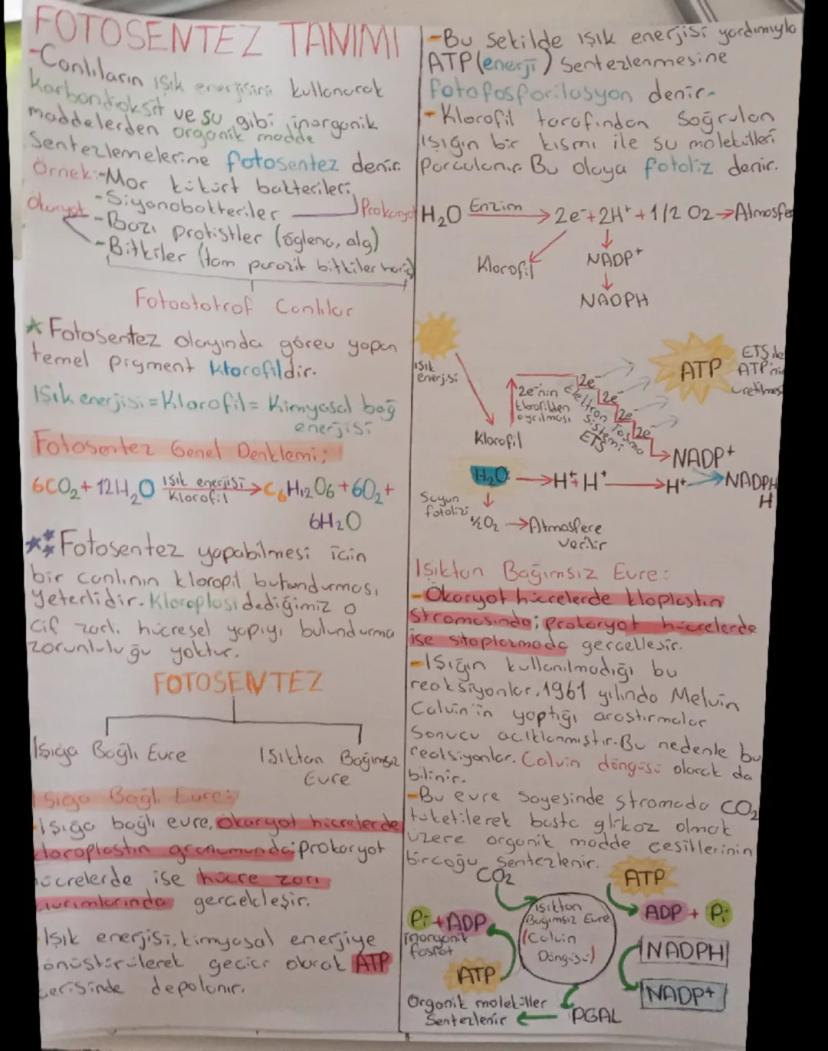 FOTOSENTEZ TANIMI
-Canlıların ışık enerjisini kullanarak
karbondioksit ve su gibi inorganik
maddelerden organik madde
sentezlemelerine fotosentez denir.
Örnek:-Mor kükürt bakterileri
-Siyanobakteriler
Prokaryot
Ökaryot
-Bazı protistler (öglena, alg)
-Bitkiler (tam parazit bitkiler hariç)
Fotoototrof Canlılar
*Fotosentez olayında görev yapan
temel pigment klorofildir.
Işık enerjisi=Klorofil= Kimyasal bağ
enerjisi
Fotosentez Genel Denklemi:
6CO2+12H2O ışık enerjisi Klorofil →C6H12O6+6O2+
6H2O
** Fotosentez yapabilmesi için
bir canlının kloropil bulundurması
yeterlidir. Kloroplast dediğimiz o
çif zarlı hücresel yapıyı bulundurma
zorunluluğu yoktur.
FOTOSENTEZ
Işığa Bağlı Evre
Işıktan Bağımsız
Evre
Işığa Bağlı Evre:
Işığa bağlı evre, ökaryot hücrelerde
kloroplastın granumunda; prokaryot
hücrelerde ise hücre zarı
kıvrımlarında gerçekleşir.
Işık enerjisi, kimyasal enerjiye
önüştürülerek geçici olarak ATP
içerisinde depolanır.
-Bu şekilde ışık enerjisi yardımıyla
ATP(enerji) sentezlenmesine
fotofosforilasyon denir-
-Klorofil tarafından soğrulan
ışığın bir kısmı ile su molekülleri
parçalanır. Bu olaya fotoliz denir.
H2O Enzim → 2e-+2H++1/2 O2→Atmosfer
Klorofil
NADP+
NADPH
Işık
enerjisi
2e-'nin
klorofilden
ayrılması
2e-
2e-
2e-
2e-
Elektron Taşıma
Sistemi
ETS
ATP
ETS ile
ATP'nin
üretilmesi
Klorofil
NADP+
H2O → H+ H+ → H+ → NADPH
H
Suyun
fotolizi
½O2 →Atmosfere
verilir
Işıktan Bağımsız Evre:
-Ökaryot hücrelerde kloplastın
stromasında; prokaryot hücrelerde
ise sitoplazmada gerçekleşir.
-Işığın kullanılmadığı bu
reaksiyonlar, 1961 yılında Melvin
Calvin'in yaptığı araştırmalar
sonucu açıklanmıştır. Bu nedenle bu
reaksiyonlar. Calvin döngüsü olarak da
bilinir.
-Bu evre sayesinde stromada CO2
tüketilerek başta glikoz olmak
üzere organik madde çeşitlerinin
birçoğu sentezlenir.
CO2
ATP
Işıktan
Bağımsız Evre
(Calvin
Döngüsü)
Pi+ADP
İnorganik
fosfat
ATP
ADP + Pi
NADPH
NADP+
Organik moleküller
sentezlenir ← PGAL